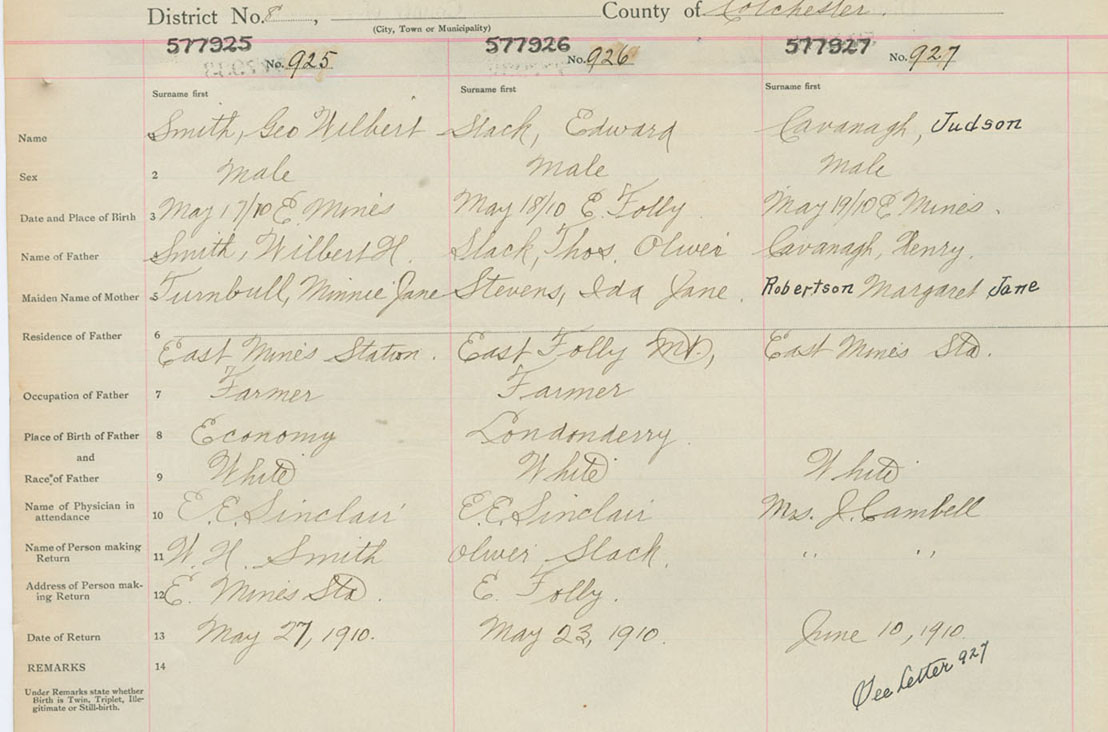 District No. 8, County of Colchester.
(City, Town or Municipality)
577925 577926 577927
No. 925 No. 926 No. 927
Surname first Surname first Surname first
Name Smith, Geo Wilbert Slack, Edward Cavanagh, Judson
Sex 2 Male Male Male
Date and Place of Birth 3 May 17/10 E Mines May 18/10 E. Folly May 19/10 E Mines.
Name of Father Smith, Wilbert H. Slack, Thos. Oliver Cavanagh, Henry.
Maiden Name of Mother 5 Turnbull, Minnie Jane Stevens, Ida Jane. Robertson Margaret Jane
Residence of Father 6
East Mines Station. East Folly Mt, East Mines Sta.
Occupation of Father 7 Farmer Farmer
Place of Birth of Father 8 Economy Londonderry.
and
Race of Father 9 White White White
Name of Physician in attendance 10 E. E. Sinclair E. E. Sinclair Mrs. J. Cambell
Name of Person making Return 11 W. H. Smith Oliver Slack. " "
Address of Person making Return 12 E. Mines Sta. E. Folly.
Date of Return 13 May 27, 1910. May 23, 1910. June 10, 1910.
REMARKS 14
See Letter 927
Under Remarks state whether
Birth is Twin, Triplet, Ille-
gitimate or Still-birth.